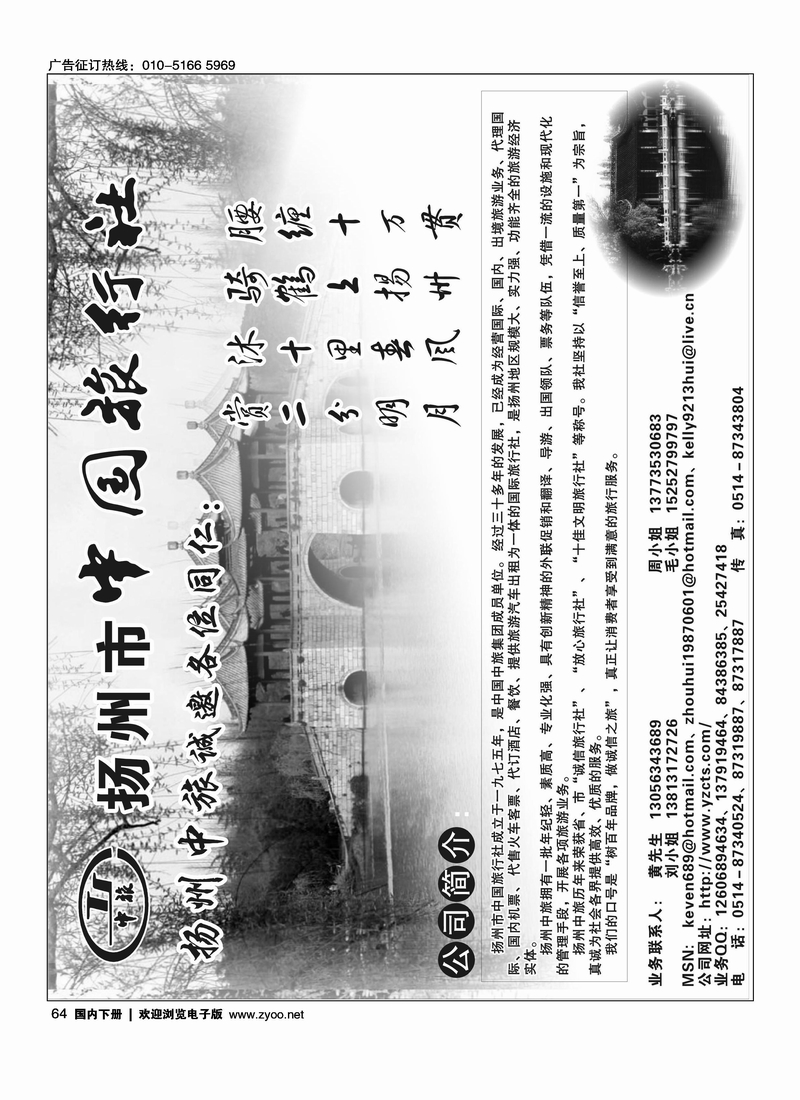 广告征订热线：010-5166 5969
中旅
扬州市中国旅行社
扬州中旅诚邀各位同仁：
腰缠十万贯
骑鹤上扬州
沐十里春风
赏二分明月
公司简介：
扬州市中国旅行社成立于一九七五年，是中国中旅集团成员单位。经过三十多年的发展，已经成为经营国际、国内、出境旅游业务、代理国
际、国内机票、代售火车客票、代订酒店、餐饮、提供旅游汽车出租为一体的国际旅行社，是扬州地区规模大、实力强、功能齐全的旅游经济
实体。
扬州中旅拥有一批年纪轻、素质高、专业化强、具有创新精神的外联促销和翻译、导游、出国领队、票务等队伍，凭借一流的设施和现代化
的管理手段，开展各项旅游业务。
扬州中旅历年来荣获省、市“诚信旅行社”、“放心旅行社”、“十佳文明旅行社”等称号。我社坚持以“信誉至上、质量第一”为宗旨，
真诚为社会各界提供高效、优质的服务。
我们的口号是“树百年品牌，做诚信之旅”，真正让消费者享受到满意的旅行服务。
业务联系人： 黄先生 13056343689 周小姐 13773530683
刘小姐 13813172726 毛小姐 15252799797
MSN： keven689@hotmail.com、zhouhui19870601@hotmail.com、kelly9213hui@live.cn
公司网址：http://www.yzcts.com/
业务QQ：12606894634、137919464、84386385、25427418
电 话：0514-87340524、87319887、87317887 传 真：0514-87343804
64 国内下册 | 欢迎浏览电子版 www.zyoo.net